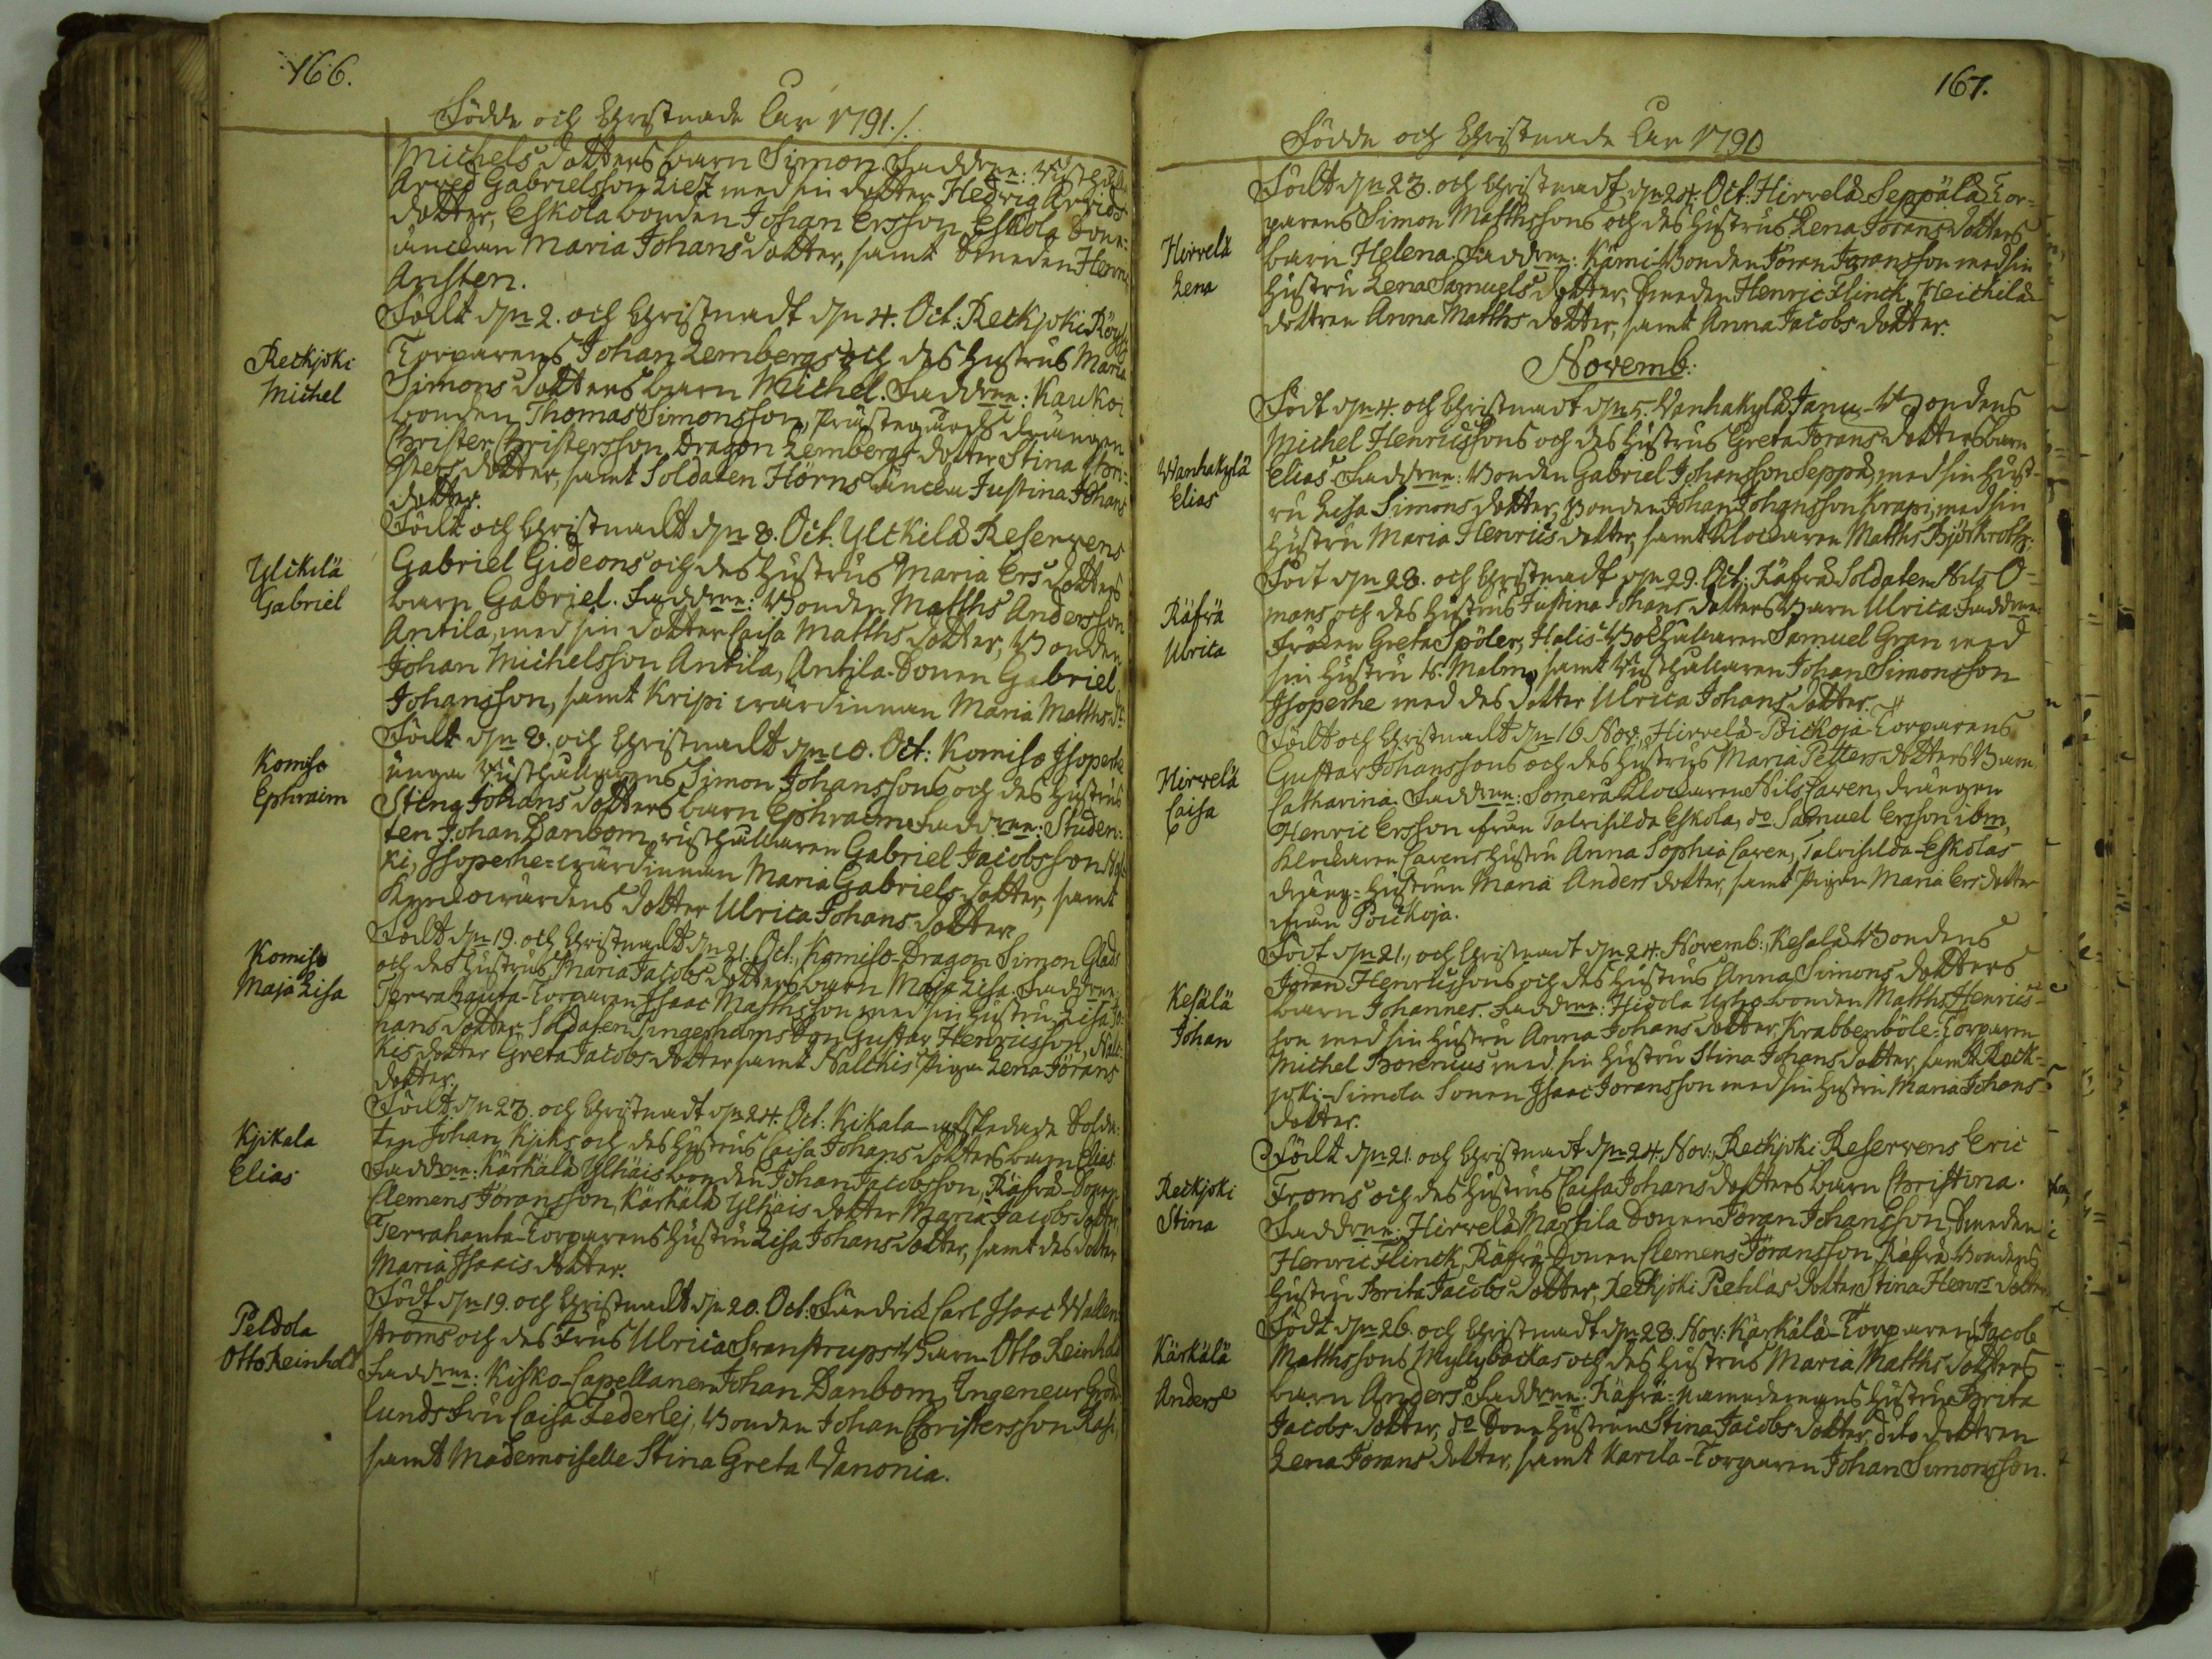 166.
Födde och Christnade Åar 1791./.
Michels dotters barn Simon. Faddrar: Rusth:
Arved Gabrielsson Liez med sin dotter Hedvig Arvids
dotter, Eskola bonden Johan Ersson, Eskola Sone-
änckan Maria Johans dotter, samt Smeden Henric
Ahlsten.
Reckjoki
Michel
Födt d:n 2. och Christnadt d:n 4. Oct: Reckjoki
Torparens Johan Lembergs och des hustrus Maria
Simons dotters barn Michel. Faddrar: Kaukoi
bonden Thomas Simonsson, Prästegårds drängen
Christer Christersson, Dragon Lembergs dotter Stina Chri-
sters dotter, samt Soldaten Hörns änckan Justina Johans
dotter.
Ylckilä
Gabriel
Födt och Christnadt d:n 8. Oct. Ylckilä Reservens
Gabriel Gideons och des hustrus Maria Ers dotters
barn Gabriel. Faddrar: Bonden Matths Andersson
Antila, med sin dotter Caisa Matths dotter, Bonden
Johan Michelsson Antila, Antila-Sonen Gabriel
Johansson, samt Kripi wärdinnan Maria Matths dr.
Komiso
Ephraim
Födt d:n 8. och Christnadt d:n 10. Oct: Komiso Isoperhe
unga Rusthållarens Simon Johanssons och des hustrus
Stina Johans dotters barn Ephraim. Faddrar: Studen-
ten Johan Danbom, rusthållaren Gabriel Jacobsson
ki, Isoperhe-wärdinnan Maria Gabriels dotter, samt
wärdens dotter Ulrica Johans dotter.
Komiso
Maja Lisa
Födt d:n 19. och Christnadt d:n 21. Oct: Komiso-Dragon Simon Glads
och des hustrus Maria Jacobs dotters barn Maja Lisa. Faddrar:
Terrahauta-Torparen Isaac Mathsson med sin hustru Lisa Jo-
hans dotter, Soldaten Tingerholms Son Gustav Henricsson,
kis dotter Greta Jacobs dotter samt Nalckis Pigan Lena Jörans
dotter.
Kjikala
Elias
Födt d:n 23. och Christnadt d:n 24. Oct: Kikala afskedade Solda-
ten Johan Kjiks och des hustrus Caisa Johans dotters barn Elias.
Faddrar: Kärkälä Ylhäis bonden Johan Jacobsson, Räfvä-Sonen
Clemens Jöransson, Kärkälä Ylhäis dotter Maria Jacobs dotter,
Terrahauta-Torparens hustru Lisa Johans dotter, samt des dotter
Maria Isaacs dotter.
Peldola
Otto Reinhold
Födt d:n 19. och Christnadt d:n 20. Oct: Fändrick Carl Isaac Wallen-
ströms och des Frus Ulrica Svanstrups Barn Otto Reinhold
Faddrar: Kisko-Capellanen Johan Danbom, Ingeneur
lunds Fru Caisa Federlej, Bonden Johan Christersson
samt Mademoiselle Stina Greta Vanonia.
167.
Födde och Christnade Åar 1791
Hirvelä
Lena
Födt d:n 23. och Christnadt d:n 24. Oct. Hirvelä Seppälä Tor-
parens Simon Mathssons och des hustrus Lena Jörans dotters
barn Helena. Faddrar: Kämi-Bonden Jöran Jöransson med sin
hustru Lena Samuels dotter, Smeden Henric Flinck, Heickilä
dottren Anna Matths dotter, samt Anna Jacobs dotter.
Novemb:
Wanhakylä
Elias
Födt d:n 4. och Christnadt d:n 5. Vanhakylä Janu-Bondens
Michel Henricssons och des hustrus Greta Jörans dotters barn
Elias. Faddrar: Bonden Gabriel Johansson Seppä, med sin hust-
ru Lisa Simons dotter, Bonden Johan Johansson Krapi, med sin
hustru Maria Henrics dotter, samt Klockaren Matths Björkroth.
Räfvä
Ulrica
Födt d:n 28. och Christnadt d:n 29. Oct: Räfvä Soldaten Nils O-
mans och des hustrus Justina Johans dotters Barn Ulrica. Faddrar:
Fröken Greta Spöler, Halis-Bokhållaren Samuel Gran med
sin hustru B. Malm, samt Rusthållaren Johan Simonsson
Isoperhe med des dotter Ulrica Johans dotter.
Hirvelä
Caisa
Födt och Christnadt d:n 16. Nov. Hirvelä-Poickoja-Torparens
Gustav Johanssons och des hustrus Maria Petters dotters Barn
Catharina. Faddrar: Somero Klockaren Nils Caren, drängen
Henric Ersson från Talvisilda Eskola, d:o Samuel Ersson ibm,
Klockaren Carens hustru Anna Sophia Caren, Talvisilda-Eskolas
dräng-hustrun Maria Anders dotter, samt Pigan Maria Ers dotter
från Poickoja.
Kesälä
Johan
Födt d:n 21. och Christnadt d:n 24. Novemb: Kesälä Bondens
Jöran Henricssons och des hustrus Anna Simons dotters
barn Johannes. Faddrar: Hidola bonden Matths Henrics-
son med sin hustru Anna Johans dotter, Krabbenböle-Torparen
Michel Borenius med sin hustru Stina Johans dotter, samt Reck-
joki-Simola Sonen Isaac Jöransson med sin hustru Maria Johans
dotter.
Reckjoki
Stina
Födt d:n 21. och Christnadt d:n 24. Nov: Reckjoki Reservens Eric
Froms och des hustrus Caisa Johans dotters barn Christina.
Faddrar: Hirvelä Martila Sonen Jöran Johansson, Smeden
Henric Flinck, Räfvä Sonen Clemens Jöransson, Räfvä Bondens
hustru Brita Jacobs dotter, Reckjoki Retulas dotter Stina Henrics dotter
Kärkälä
Anders
Födt d:n 26. och Christnadt d:n 28. Nov: Kärkälä-Torparen Jacob
Mathssons Myllybackas och des hustrus Maria Matths dotters
barn Anders. Faddrar: Räfvä-nämndemans hustru Brita
Jacobs dotter, d:o Sone hustrun Stina Jacobs dotter, dito dottren
Lena Jörans dotter, samt Karila-Torparen Johan Simonsson.